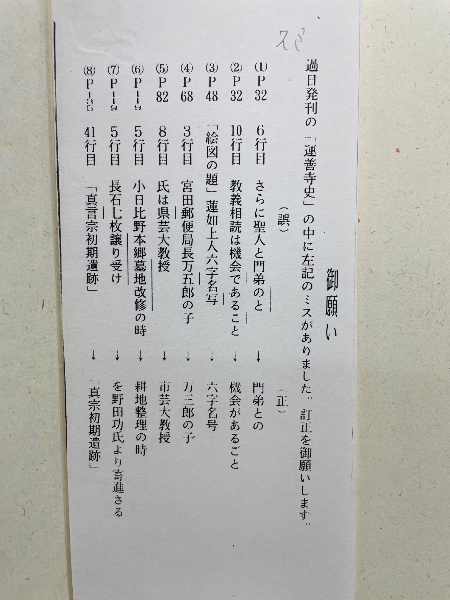 スミ
御願い
過日発刊の「蓮善寺史」の中に左記のミスがありました。訂正を御願いします。
（誤）　（正）
(1) P32 6行目 さらに聖人と門弟のと → 門弟との
(2) P32 10行目 教義相続は機会であること → 機会があるごと
(3) P48 「絵図の題」蓮如上人六字名写 → 六字名号
(4) P68 3行目 宮田郵便局長万五郎の子 → 万三郎の子
(5) P82 8行目 氏は県芸大教授 → 市芸大教授
(6) P119 5行目 小日比野本郷墓地改修の時 → 耕地整理の時
(7) P119 5行目 長石七枚譲り受け → を野田功氏より寄進さる
(8) P135 41行目 「真言宗初期遺跡」 → 「真宗初期遺跡」